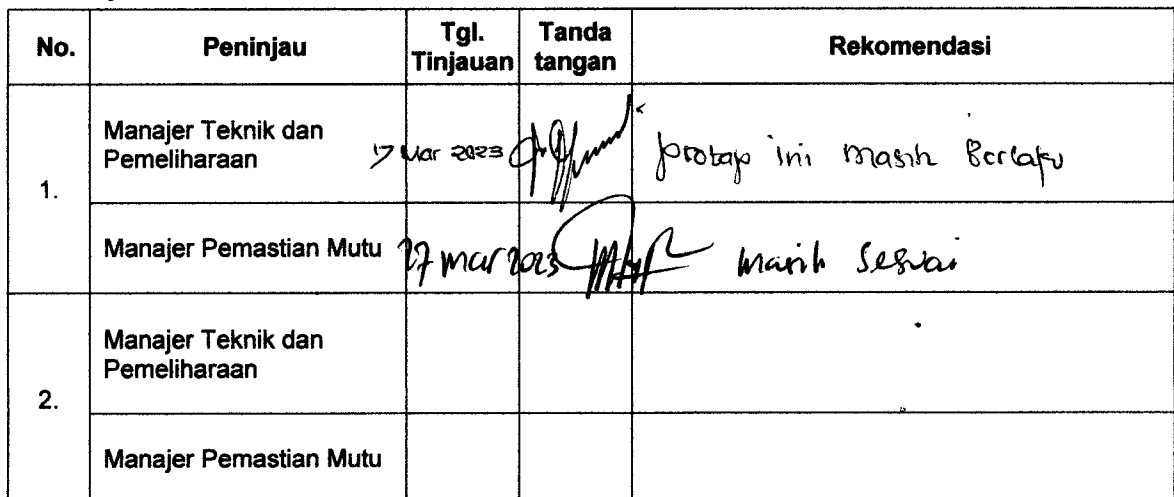 No. Peninjau Tgl. Tinjauan Tanda tangan Rekomendasi
1.
Manajer Teknik dan Pemeliharaan 17 Mar 2023 protap ini masih Berlaku
Manajer Pemastian Mutu 27 mar 2023 masih sesuai
2.
Manajer Teknik dan Pemeliharaan
Manajer Pemastian Mutu